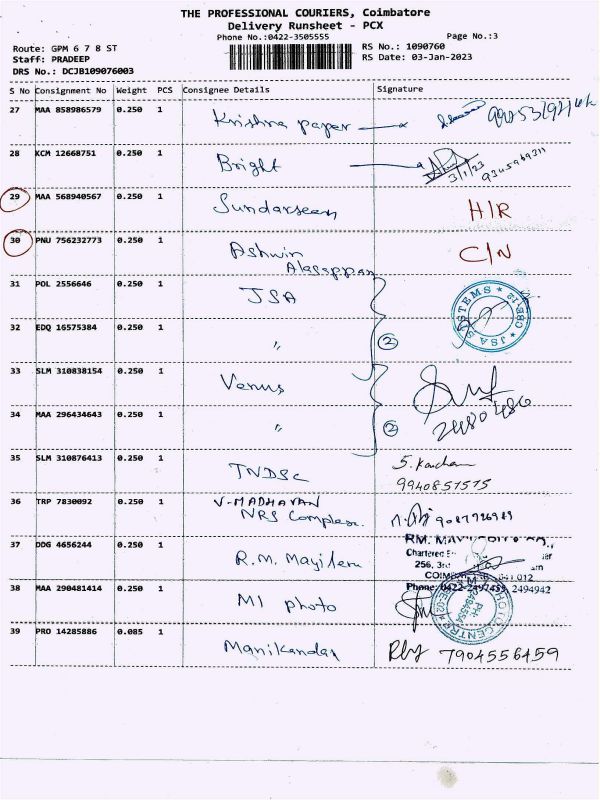 THE PROFESSIONAL COURIERS, Coimbatore
Delivery Runsheet - PCX
Phone No.:0422-3505555 Page No.:3
Route: GPM 6 7 8 ST RS No.: 1090760
Staff: PRADEEP RS Date: 03-Jan-2023
DRS No.: DCJB109076003
S No Consignment No Weight PCS Consignee Details Signature
27 MAA 858986579 0.250 1 Krishna paper
28 KCM 12668751 0.250 1 Bright 3/1/23
29 MAA 568940567 0.250 1 H/R
30 PNU 756232773 0.250 1 Ashwin Alagappan C/N
31 POL 2556646 0.250 1 JSA JSA SYSTEMS
32 EDQ 16575384 0.250 1 〃 2
33 SLM 310838154 0.250 1 Venus
2480486
34 MAA 296434643 0.250 1 〃 2
35 SLM 310876413 0.250 1 TNDSC
9940851515
36 TRP 7830092 0.250 1 V-MADHAVAN
NRS
37 DDG 4656244 0.250 1 R.M.
Chartered
256,
Phone: 2494942
38 MAA 290481414 0.250 1 MI photo PHOTO CENTRE
39 PRO 14285886 0.085 1 Manikandan 7904556459